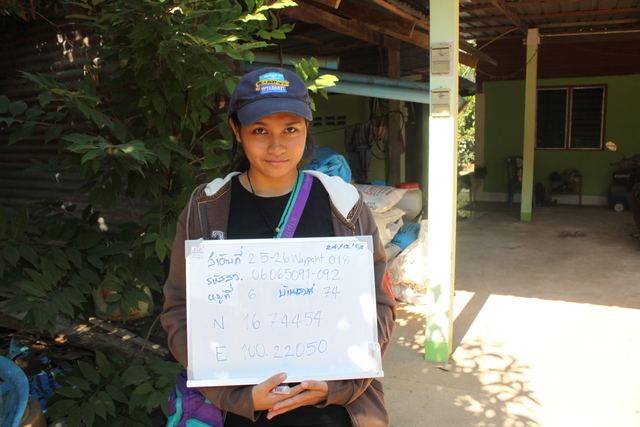 24/12/52
ลำดับที่ 25-26 Waypoint 018
รหัสรว. 06065091-092
หมู่ที่ 6 บ้านเลขที่ 74
N 16.74454
E 100.22050